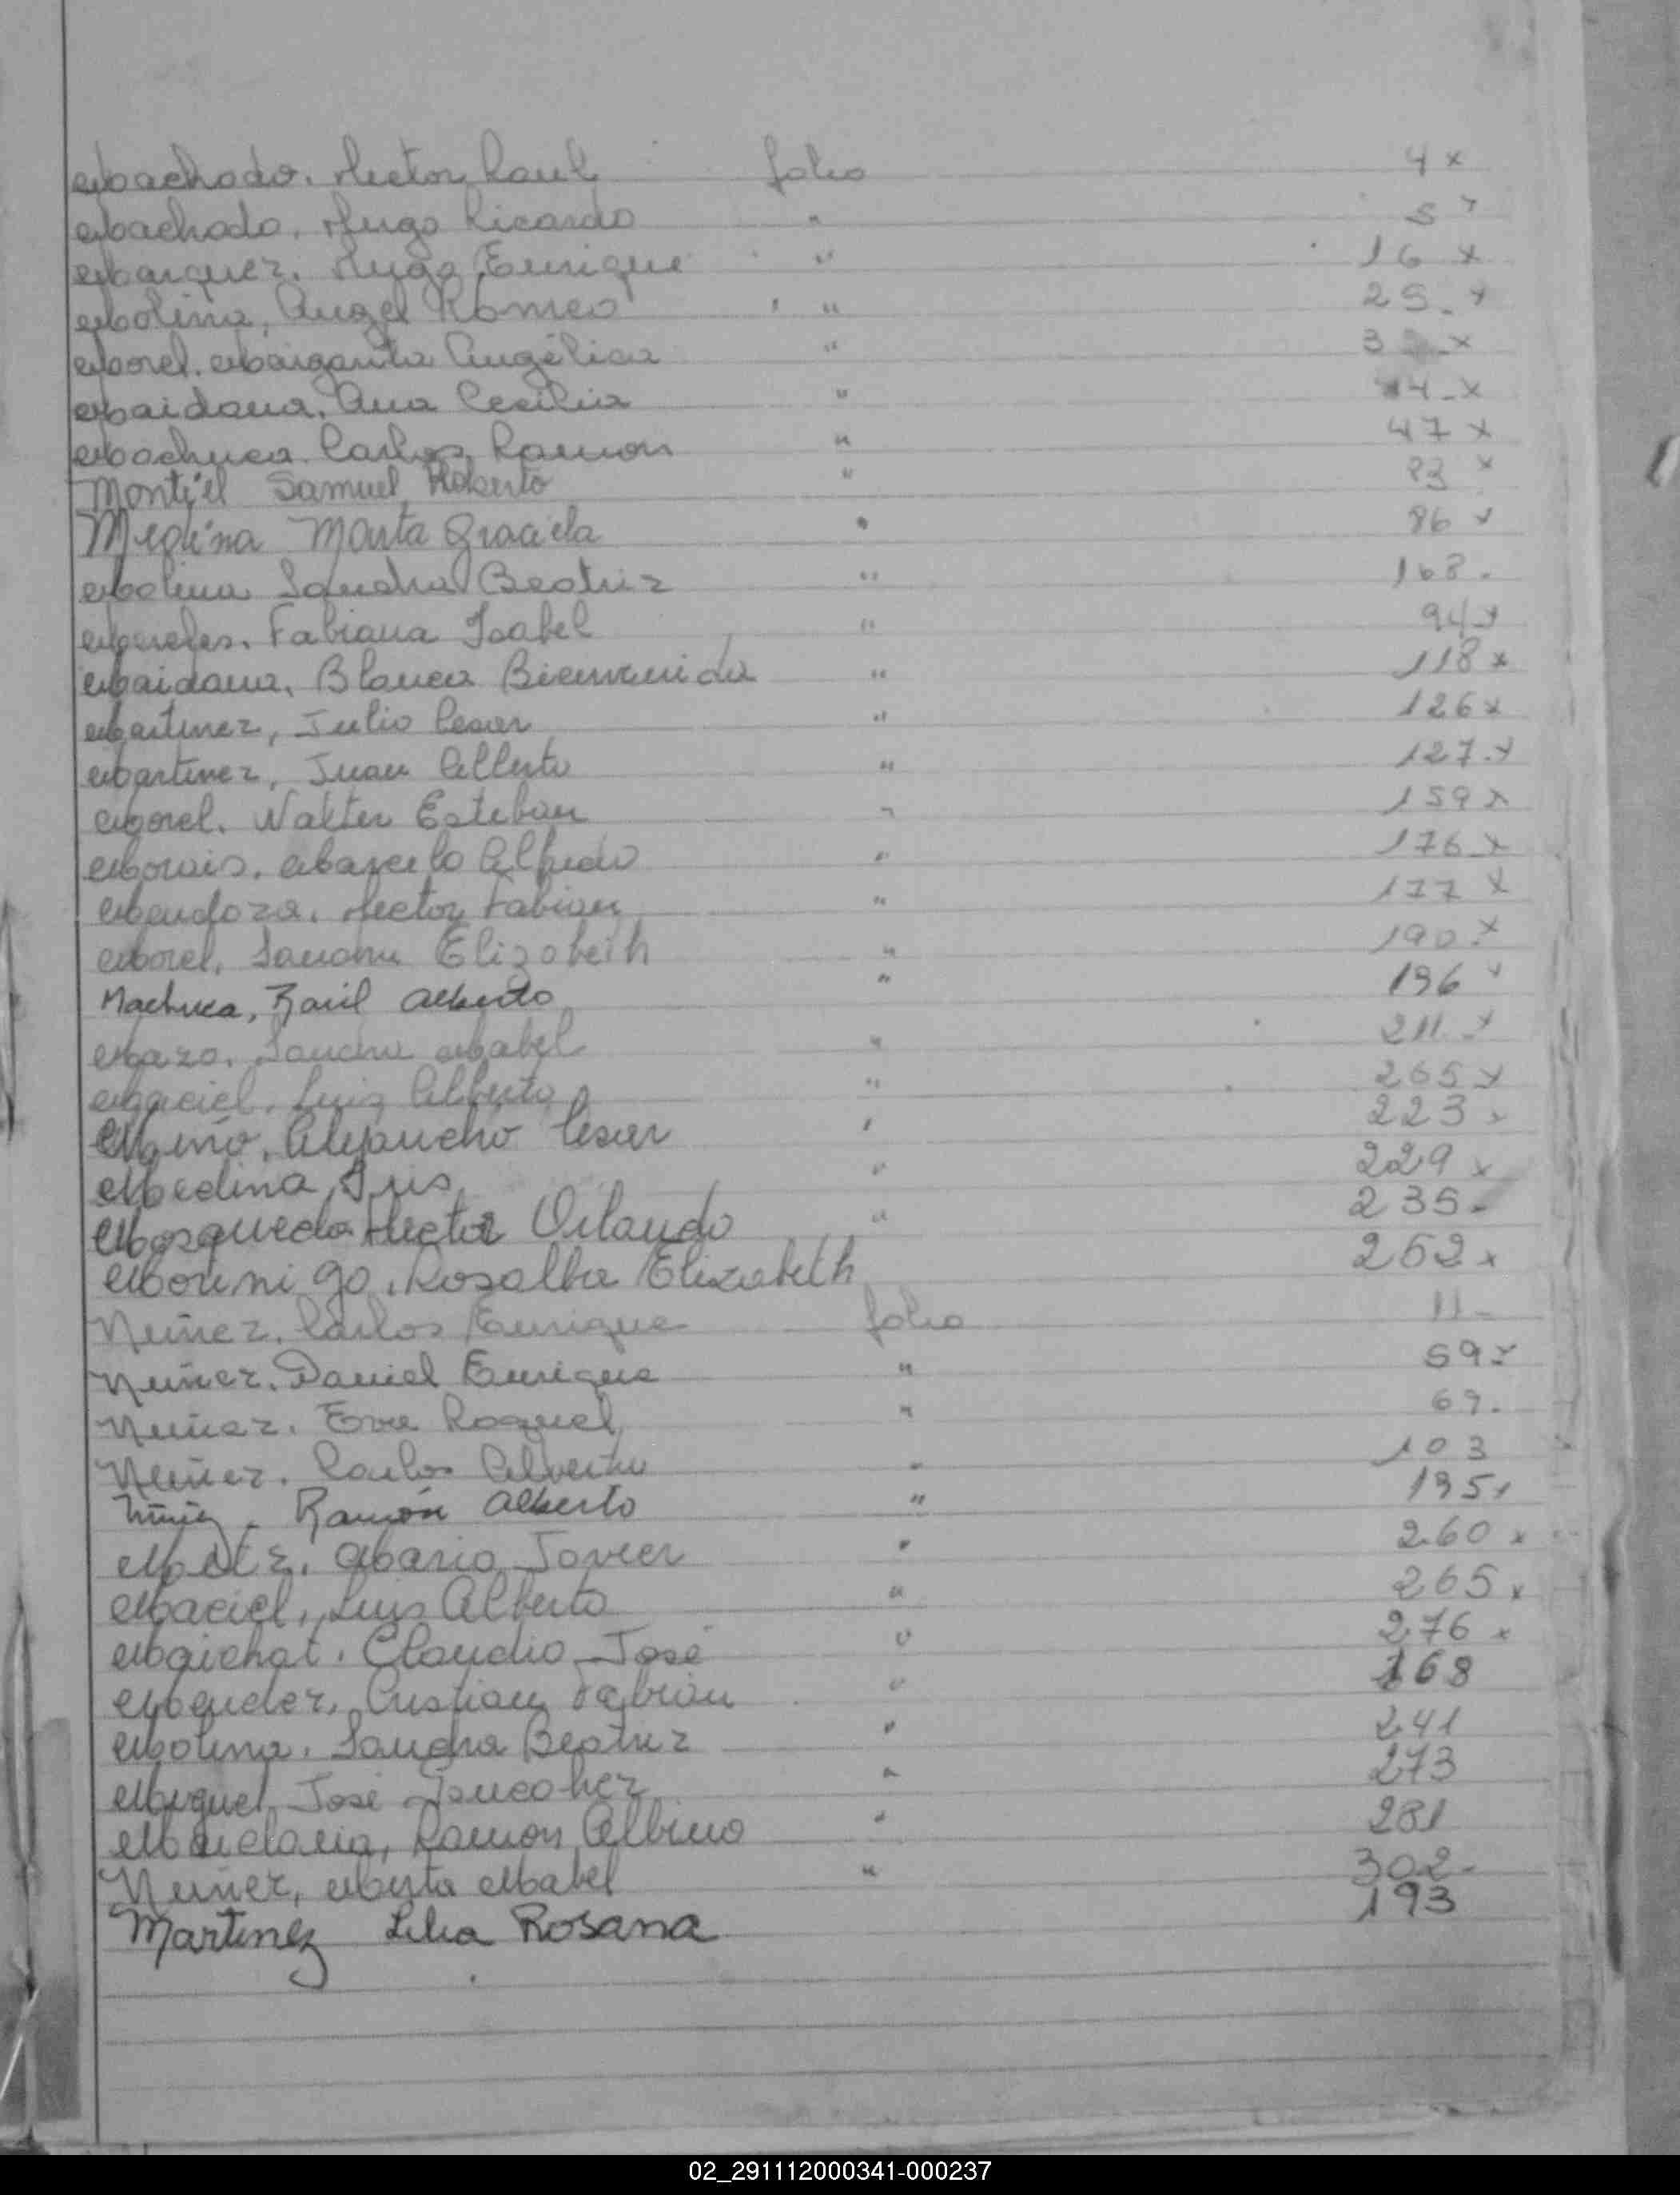 Machado, Hector Raul folio 4 x
Machado, Hugo Ricardo " 5 x
Marquez, Hugo Enrique " 16 x
Molina, Angel Romeo " 25 x
Morel, Margarita Angélica " x
Maidana, Ana Cecilia " 44 x
Machuca Carlos Ramon " 47 x
Montiel Samuel Roberto " 83 x
Medina Marta Graciela " 86 x
Molina Sandra Beatriz " 168.
Mereles, Fabiana Isabel " 94 x
Maidana, Blanca Bienvenida " 118 x
Martinez, Julio Cesar " 126 x
Martinez, Juan Alberto " 127 x
Morel, Walter Esteban " 159 x
Morais, Marcelo Alfredo " 176 x
Mendoza, Hector Fabian " 177 x
Morel, Sandra Elizabeth " 190 x
Machuca, Raúl Alberto " 196 x
Mazo, Sandra Mabel " 211 x
Maciel, Luis Alberto " 265 x
Miño, Alejandro Cesar " 223 x
Medina, Iris " 229 x
Mosqueda Hector Orlando " 235
Morinigo, Rosalba Elizabeth 252 x
Nuñez, Carlos Enrique folio 11
Nuñez, Daniel Enrique " 59 x
Nuñez, Eva Raquel " 69.
Nuñez, Carlos Alberto " 103
Nuñez, Ramón Alberto " 195 x
Mario Javier " 260 x
Maciel, Luis Alberto " 265 x
Claudio José " 276 x
Mendez, Cristian Fabian " 168
Molina, Sandra Beatriz " 241
Miguel José " 273
Ramon Albino " 281
Nuñez, Mirta Mabel " 302
Martinez Lilia Rosana 193
02_291112000341-000237